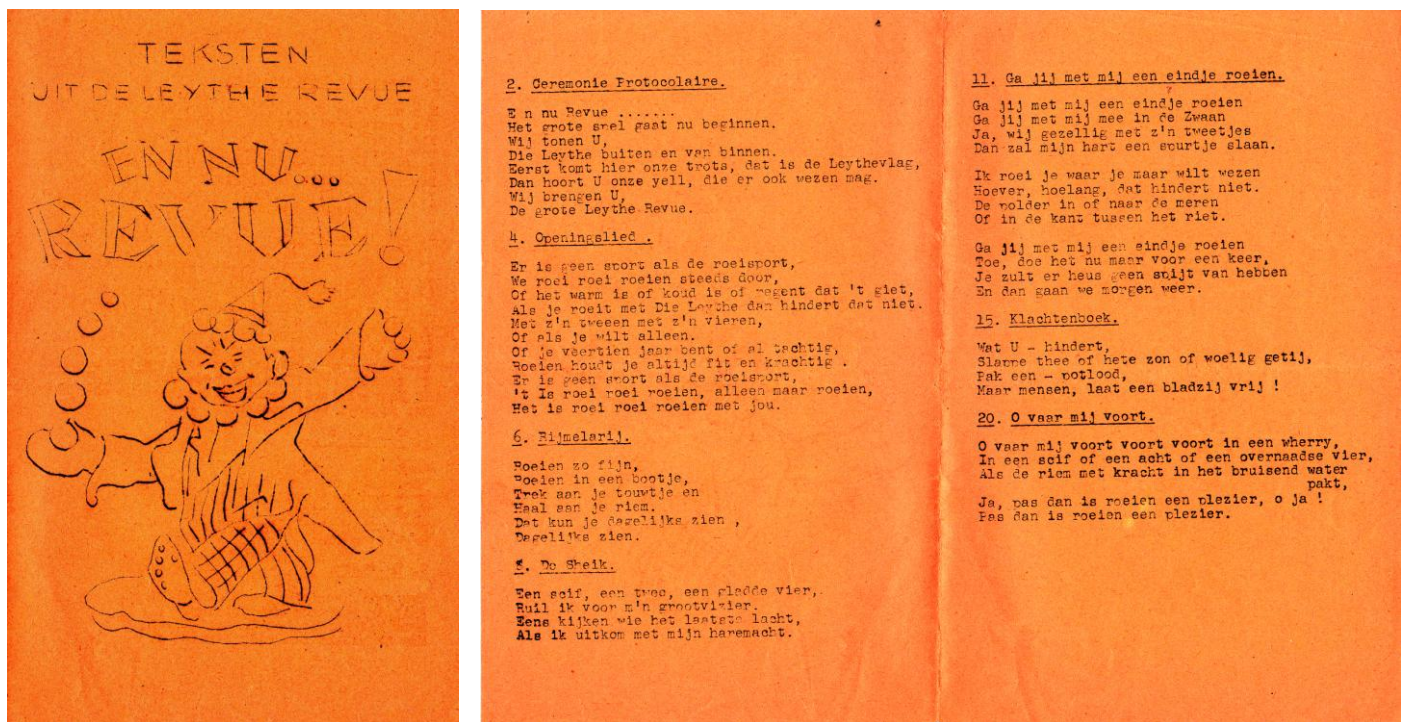 TEKSTEN
UIT DE LEYTHE REVUE
EN NU...
REVUE!
2. Ceremonie Protocolaire.
E n nu Revue .......
Het grote spel gaat nu beginnen.
Wij tonen U,
Die Leythe buiten en van binnen.
Eerst komt hier onze trots, dat is de Leythevlag,
Dan hoort U onze yell, die er ook wezen mag.
Wij brengen U,
De grote Leythe Revue.
4. Openingslied .
Er is geen sport als de roeisport,
We roei roei roeien steeds door,
Of het warm is of koud is of regent dat 't giet,
Als je roeit met Die Leythe dan hindert dat niet.
Met z'n tweeen met z'n vieren,
Of als je wilt alleen.
Of je veertien jaar bent of al tachtig,
Roeien houdt je altijd fit en krachtig .
Er is geen sport als de roeisport,
't Is roei roei roeien, alleen maar roeien,
Het is roei roei roeien met jou.
6. Rijmelarij.
Roeien zo fijn,
Roeien in een bootje,
Trek aan je touwtje en
Haal aan je riem.
Dat kun je dagelijks zien ,
Dagelijks zien.
De Sheik.
Een scif, een twee, een gladde vier,
Ruil ik voor m'n grootvizier.
Eens kijken wie het laatste lacht,
Als ik uitkom met mijn haremacht.
11. Ga jij met mij een eindje roeien.
Ga jij met mij een eindje roeien
?
Ga jij met mij mee in de Zwaan
Ja, wij gezellig met z'n tweetjes
Dan zal mijn hart een spurtje slaan.
Ik roei je waar je maar wilt wezen
Hoever, hoelang, dat hindert niet.
De polder in of naar de meren
Of in de kant tussen het riet.
Ga jij met mij een eindje roeien
Toe, doe het nu maar voor een keer,
Je zult er heus geen spijt van hebben
En dan gaan we morgen weer.
15. Klachtenboek.
Wat U - hindert,
Slappe thee of hete zon of woelig getij,
Pak een - potlood,
Maar mensen, laat een bladzij vrij !
20. O vaar mij voort.
O vaar mij voort voort voort in een wherry,
In een scif of een acht of een overnaadse vier,
Als de riem met kracht in het bruisend water
pakt,
Ja, pas dan is roeien een plezier, o ja !
Pas dan is roeien een plezier.